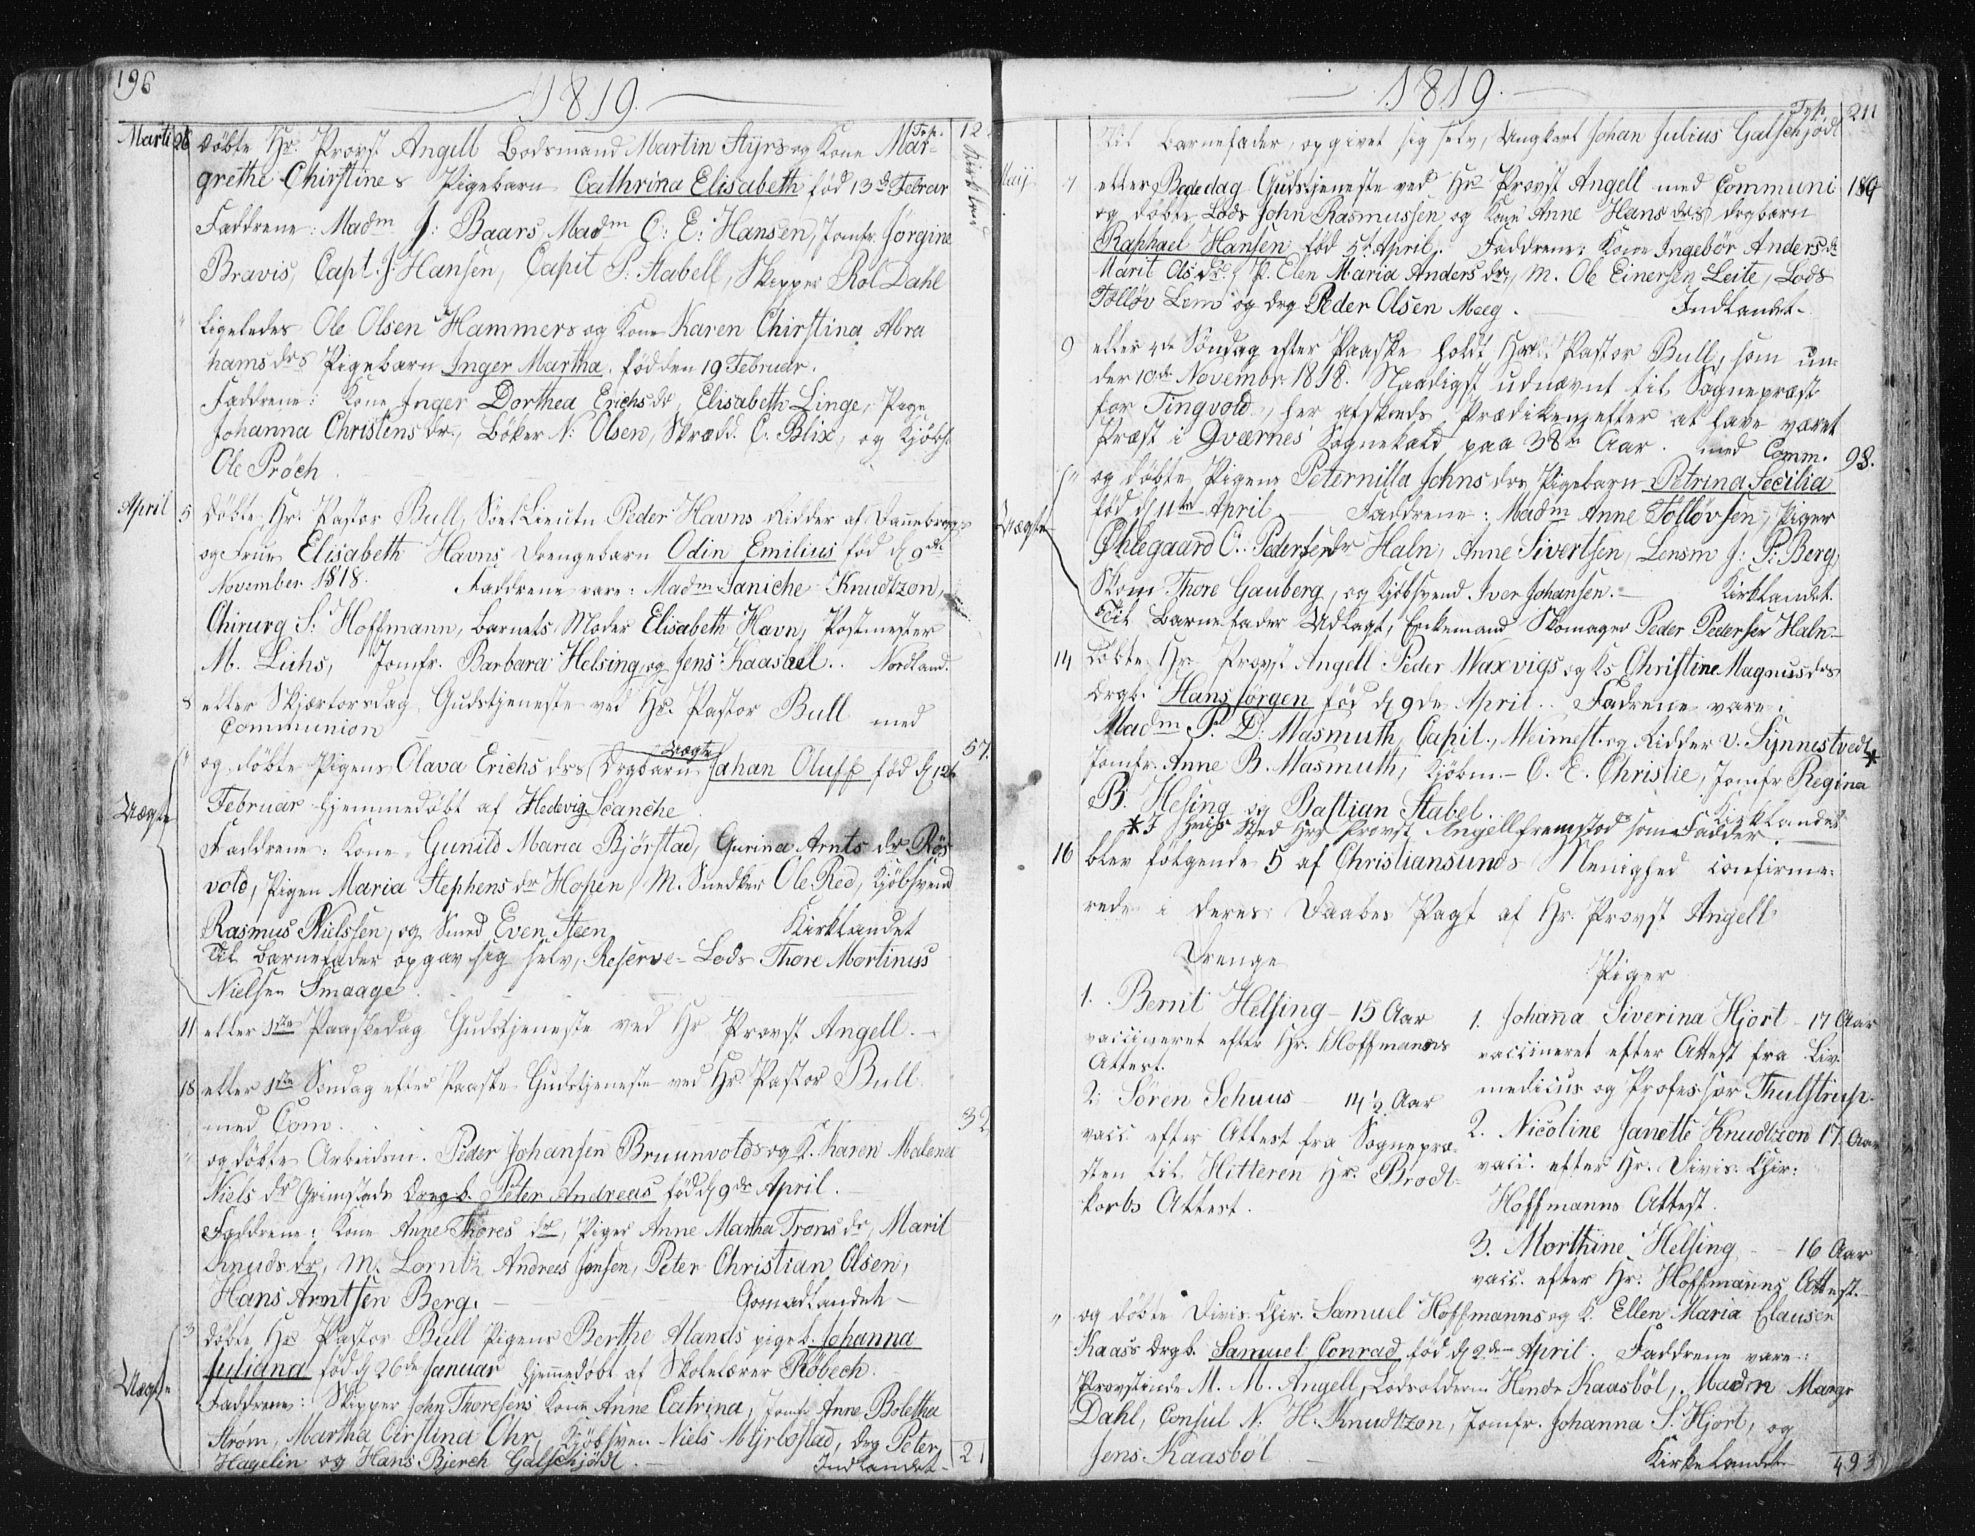 196
1819.
Trp. 12
Marti 28 döbte Hr. Provst Angell Bodsmand Martin Styrs og Kone Mar-
grethe Chirstines Pigebarn Cathrina Elisabeth föd 13de Febrar
Faddrene: Madm J: Baars, Madm C: E: Hansen, Jomfr. Jörgine
Bravis, Capt. J: Hansen, Capit P: Stabell, Skipper Rol Dahl
Kirkland
" Ligeledes Ole Olsen Hammers og Kone Karen Chirstina Abra
hams drs Pigebarn Inger Martha. föd den 19 Februar.
Faddrene: Kone Inger Dorthea Erichs dr, Elisabeth Linge, Pige
Johanna Christens dr., Böker N: Olsen, Skræd. C. Blix, og Kjöbs.
Ole Pröch.
April 5 döbte Hr. Pastor Bull, Söet Lieutn Peder Havns Ridder af Dannebrog
og Frue Elisabeth Havns Drengebarn Odin Emilius föd d 9de
November 1818. Faddrene vare: Madm Janiche Knudtzon,
Chirurg S: Hoffmann, Barnets Moder Elisabeth Havn, Postmester
M. Lichs, Jomfr. Barbara Helsing og Jens Kaasböl.. Nordland.
8 eller Skjærtorsdag Gudstjeneste ved Hr. Pastor Bull med
Communion 57.
" og döbte Pigens Olava Erichs drs Uægte Drgbarn Jahan Oluff föd d 12t
Februar hjemmedöbt af Hedevig Scanche
Uægte
Faddrene: Kone Gunild Maria Björstad, Gurina Arnts dr Rös
vold, Pigen Maria Stephens dr Hopen, M. Snedker Ole Red, Kjöbsvend
Rasmus Nielssen, og Smed Even Steen Kirklandet
Til Barnefader opgav sig selv, Reserve-Lods Thore Mortinuss
Nielsen Smaage.
11 eller 1ste Paaskedag Gudstjeneste ved Hr Provst Angell.
18 eller 1ste Søndag efter Paaske Gudstjeneste ved Hr. Pastor Bull
med Com. 32
" og döbte Arbeidsm. Peder Johansen Bruunvolds og K. Karen Malena
Niels dr Grimstads Dregb. Peter Andreas föd d 9de April.
Faddrene: Kone Anne Thores dr, Piger Anne Martha Trons dr, Marit
Knuds dr, M. Lorntz Andreas Jonsen, Peter Christian Olsen,
Hans Arntsen Berg. Gomadlandet
3 döbte Hr Pastor Bull Pigens Berthe Alands pigeb. Johanna
Juliana föd d 26de Januar hjemmedöbt af Skolelærer Röbech.
Uægte
Faddrene: Skipper John Thoresens Kone Anne Catrina, Jomfr Anne Boletha
Ström, Martha Cirstina Chr, Kjöbsven Niels Myrbostad, drg Peter
Hagelin og Hans Bjerch Galschjödt. Indlandet. 2
1819.
Trp. 211
til Barnefader, opgivet sig selv, Ungkarl Johan Julius Galschjödt
Maij 7 eller Bededag Gudstjeneste ved Hr Provst Angell med Communi 189
og döbte Lods John Rasmussen og Kone Anne Hans drs drgbarn
Raphael Hansen föd 4t April. Faddrene: Kone Ingebör Anders dr
Marit Ols dr, P. Elen Maria Anders dr, M. Ole Einersen Leite, Lods
Tolløv Lems og drg Peder Olsen Meeg. Indlandet.
9 eller 4de Söndag efter Paaske holdt Hr Pastor Bull, som un-
der 10de Novembr. 1818. Naadigst udnævnt til Sognepræst
for Tingvold, her afskeds Prædiken, efter at have været
Præst i Qværnes Sognekald paa 38te Aar. med Comm. 98.
" og döbte Pigens Peternilla Johns drs Pigebarn Petrina Secilia
föd d 11te April Faddrene: Madm Anne Tolløvsen, Piger
Uægte
Ohlegaard C. Pedersen dr Haln, Anne Sivertsen, Lensm J: P: Berg,
Skom Thore Gauberg, og Kjöbsvend Iver Johansen. Kirklandet.
Til Barnefader Udlagt, Enkemand Skomager Peder Pedersen Haln
14 Döbte Hr. Provst Angell Peder Waxvigs og Ks Christine Magnusdrs
Drgb. Hans Jörgen föd d 9de April.. Fadrene vare:
Madm P. D: Masmuth, Capit., Veimest. og Ridder v. Synnestvedt *
Jomfr. Anne B. Masmuth, Kjöbm. C. E. Christie, Jomfr Regina
B. Hesing og Bastian Stabel. Kirklandet
* I Hvis Sted Hr Provst Angell fremstod som Fadder.
16 blev følgende 5 af Christiansunds Menighed confirme-
rede i deres Daabes Pagt af Hr. Provst Angell
Drenge
1. Bernt Helsing - 15 Aar
vaccineret efter Hr. Hoffmanns
Attest.
2: Sören Schuus - 14½ Aar
vacc efter Attest fra Sognepræ-
sten til Hitteren Hr. Brodt-
korbs Attest.
Piger
1. Johanna Siverina Hjort - 17 Aar
vaccineret efter Attest fra Liv-
medicus og Professor Thulstrup.
2. Nicoline Janette Knudtzon 17 Aar
vacc. efter Hr. Divis. Chir:
Hoffmanns Attest.
3. Morthine Helsing - 16 Aar
vacc. efter Hr. Hoffmanns Attest.
" og döbte Divis. Chir. Samuel Hoffmanns og K. Ellen Maria Clausen
Kaass drgb. Samuel Conrad föd d 2de April. Faddrene vare:
Provstinde M. M. Angell, Lodsolderm. Hendr Kaasböl, Madm Margr
Dahl, Consul N. H. Knudtzon, Jomfr. Johanna S. Hjort, og
Jens Kaasböl Kirkelandet 493